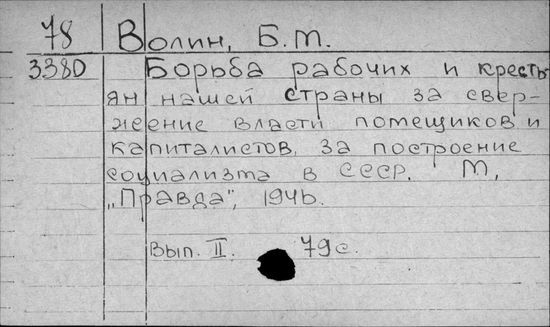 78 Волин, Б.М.
3380 Борьба рабочих и кресть
ян нашей страны за свер-
жение власти помещиков и
капиталистов, за построение
социализма в СССР. М,
„Правда", 1946.
Вып. II. 79с.